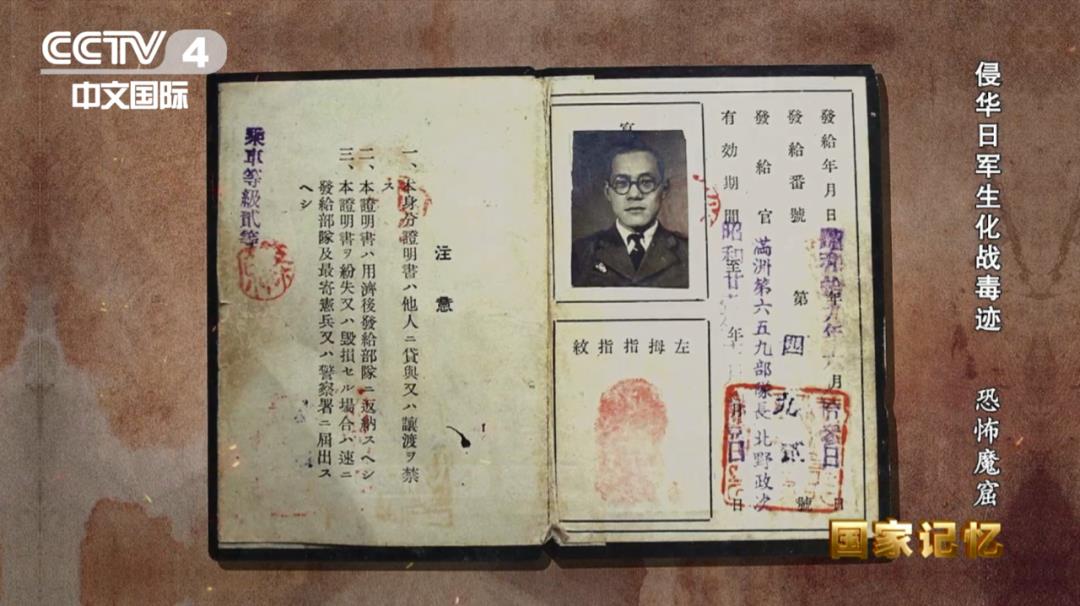 CCTV 4
中文国际
侵华日军生化战毒迹 恐怖魔窟
發給年月日
月
日
發給番號 第四
號
發給官 滿洲第六五九部隊長 北野政次
有効期間
昭和
至
年
月
日
寫
左拇指指紋
注意
一、本身分證明書ハ他人ニ貸與又ハ讓渡ヲ禁
ス
二、本證明書ハ用濟後發給部隊ニ返納スヘシ
三、本證明書ヲ紛失又ハ毀損セル場合ハ速ニ
發給部隊及最寄憲兵又ハ警察署ニ屆出ス
ヘシ
乘車等級貳等
国家记忆